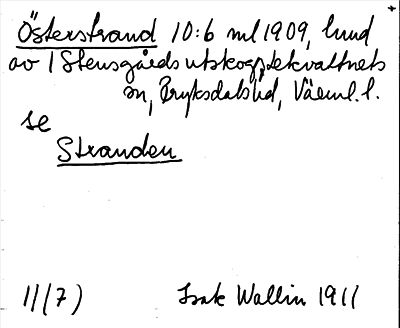 Österstrand 10:6 ml 1909, hund
av 1 Stensgårds utskog, Lekvattnets
sn, Fryksdals hd, Värml. l.
se
Stranden
11(7) Isak Wallin 1911